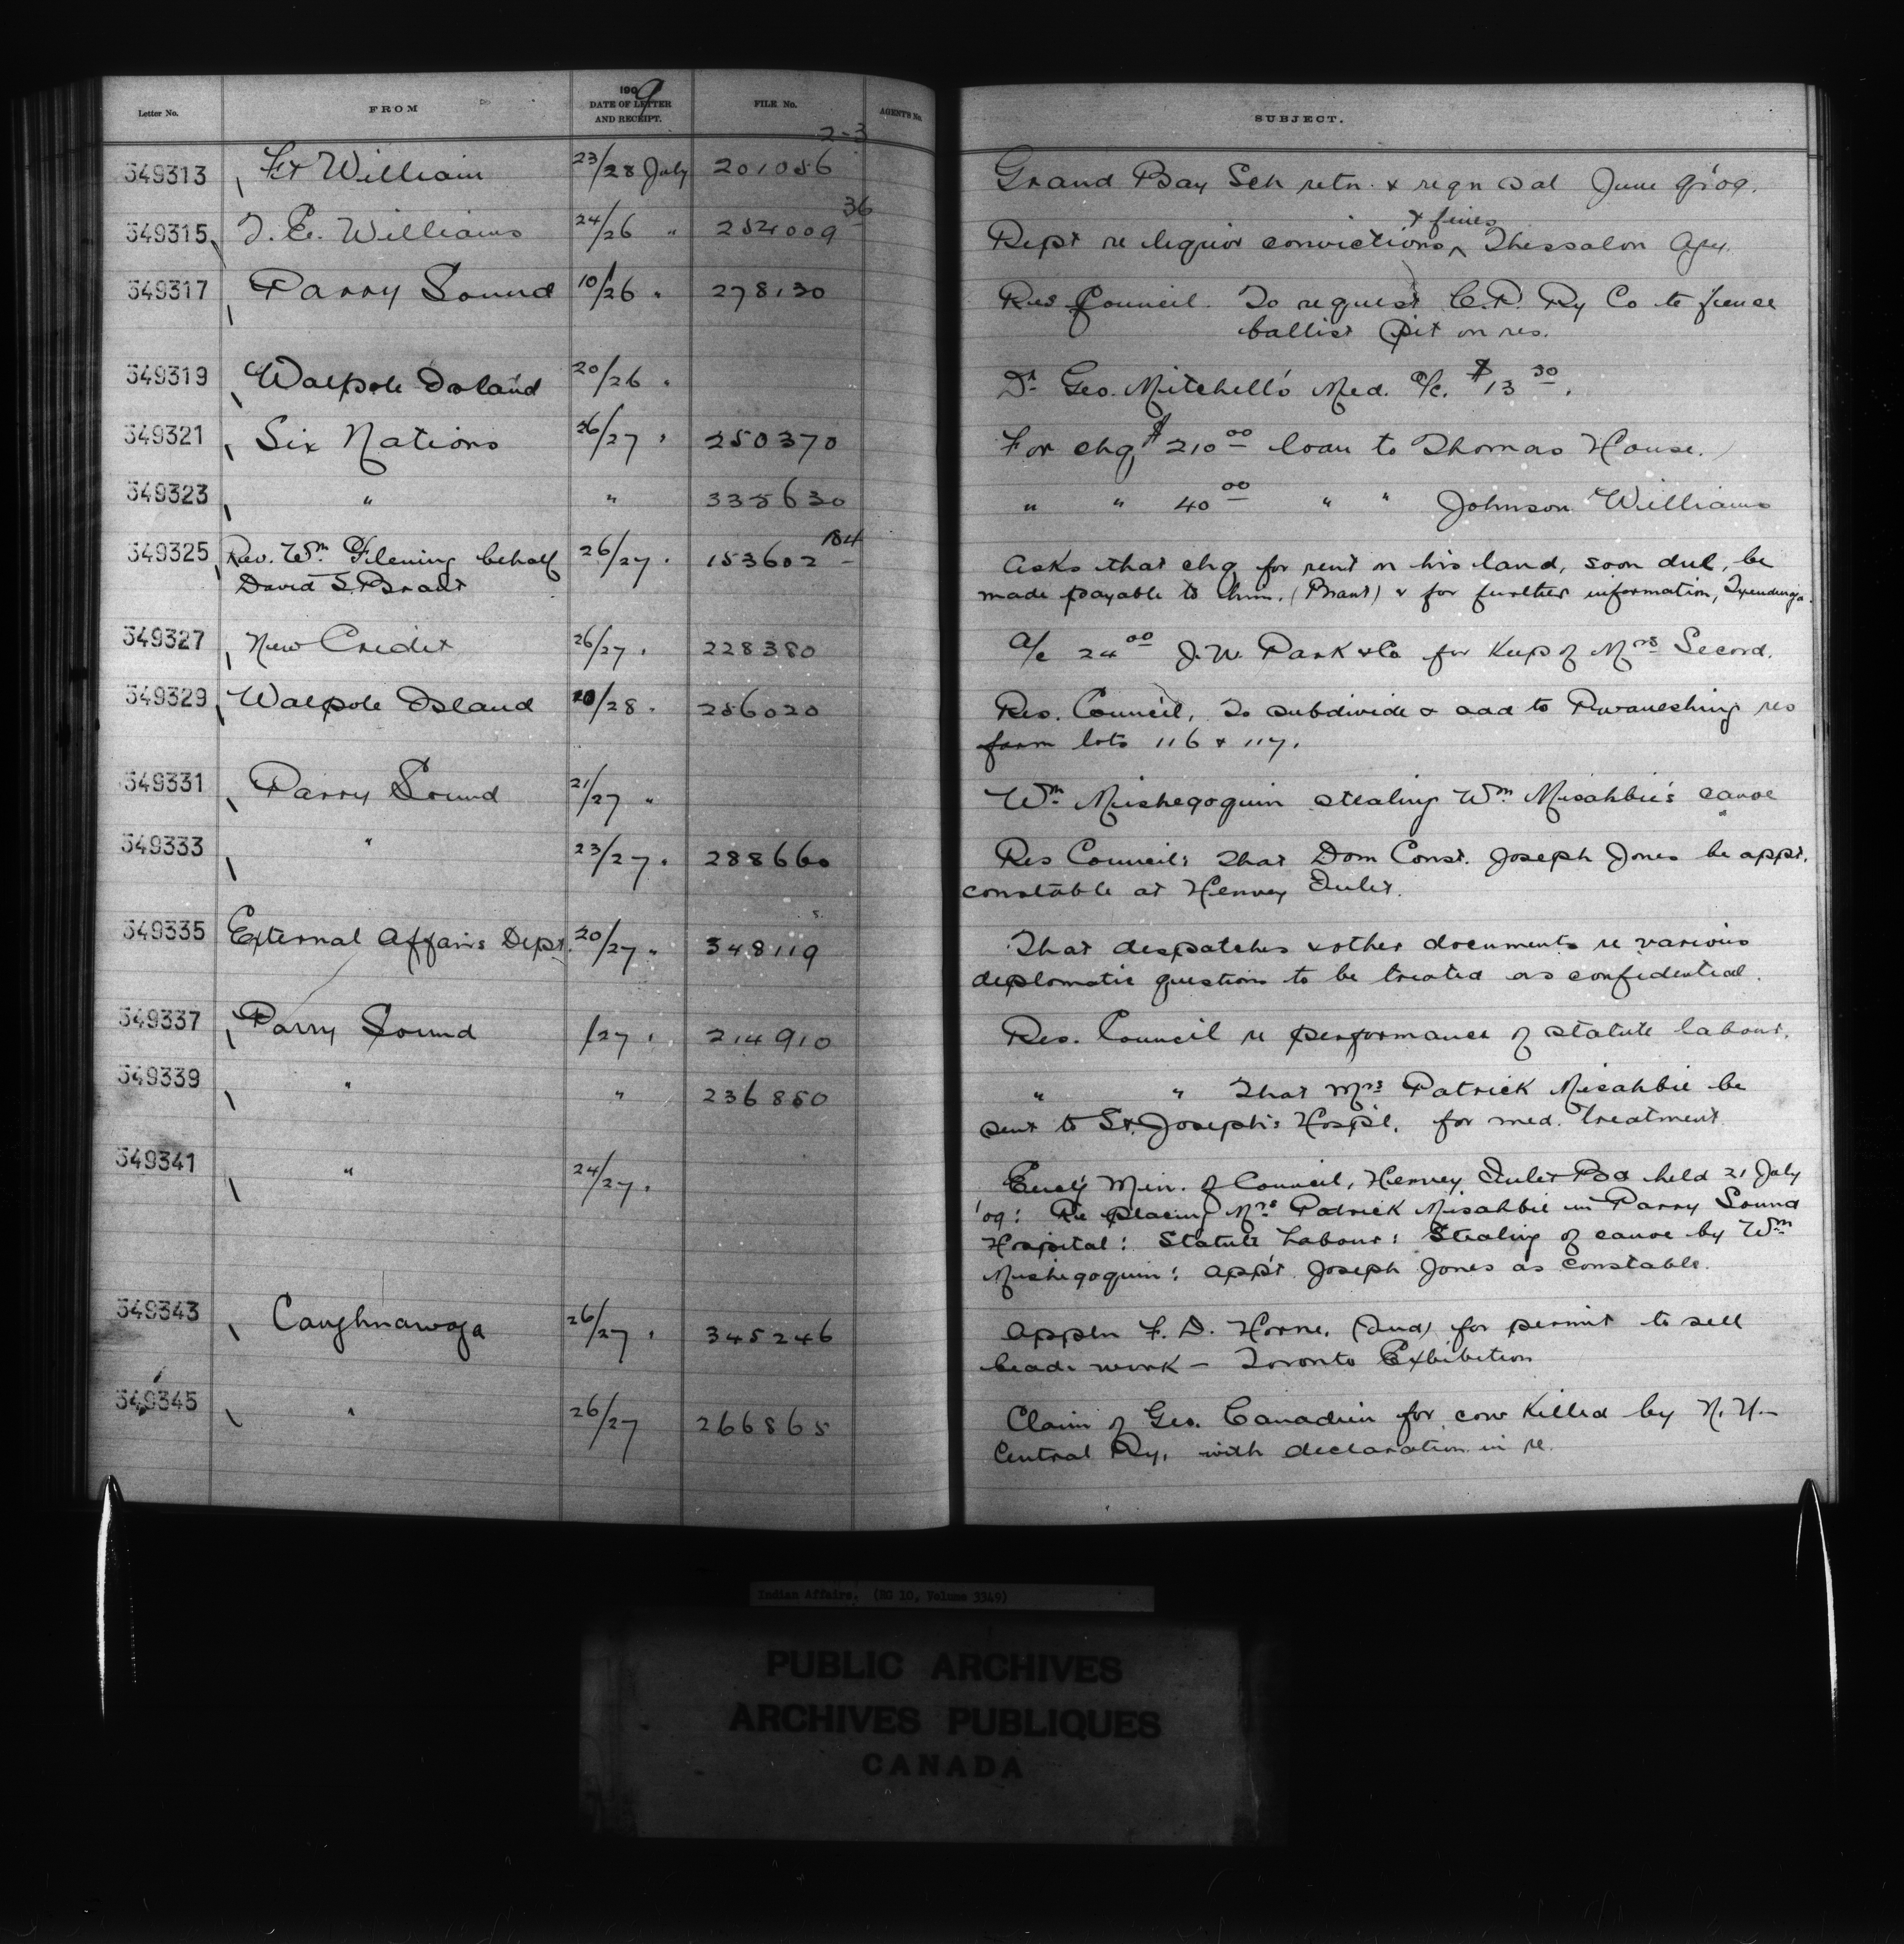 Letter No. FROM 1909 DATE OF LETTER AND RECEIPT. FILE No. AGENT'S No. SUBJECT.
349313 Ft William 23/28 July 201056 2-3 Grand Bay Sch retn. & reqn Qal June q'09.
349315 T. E. Williams 24/26 " 254009 36 Rept re liquor convictions & fines Thessalon Agcy.
349317 Parry Sound 10/26 " 278130 Res Council. To request C.P. Ry Co to fence
ballist pit on res.
349319 Walpole Island 20/26 " Dr. Geo. Mitchell's Med. a/c. $13 30.
349321 Six Nations 26/27 " 250370 For chq $210 00 loan to Thomas House.
349323 " " 335630 " " 40 00 " " Johnson Williams
349325 Rev. Wm. Fleming behalf 26/27 " 153602 184 Asks that chq for rent on his land, soon due, be
David S. Brant made payable to him. (Brant) & for further information, Tyendinaga.
349327 New Credit 26/27 " 228380 a/c 24 00 J. W. Park & Co for keep of Mrs Secord.
349329 Walpole Island 20/28 " 256020 Res. Council, To subdivide & add to res
farm lots 116 & 117.
349331 Parry Sound 21/27 " Wm. Mishegoguin stealing Wm Misahbie's canoe
349333 " 23/27 " 288660 Res Council: That Dom Const. Joseph Jones be appt.
constable at Henvey Inlet.
349335 External Affairs Dept. 20/27 " 348119 That despatches & other documents re various
deplomatic question to be treated as confidential.
349337 Parry Sound /27 " 214910 Res. Council re performance of statute labour.
349339 " " 236850 " " That Mrs Patrick Misahbie be
sent to St. Joseph's Hospl. for med. treatment
349341 " 24/27 " Encl'g Min. of Council, Henvey Inlet Bd held 21 July
'09: Re placing Mrs Patrick Misahbie in Parry Sound
Hospital: Statute Labour: Stealing of canoe by Wm
Mishegoguin: app't Joseph Jones as constable.
349343 Caughnawaga 26/27 " 345246 Appln F. D. Horne, (Ind) for permit to sell
bead work - Toronto Exhibition
349345 " 26/27 266865 Claim of Geo. Canadien for cow killed by N. Y.
Central Ry, with declaration in re.
Indian Affairs. (RG 10, Volume 3349)
PUBLIC ARCHIVES
ARCHIVES PUBLIQUES
CANADA